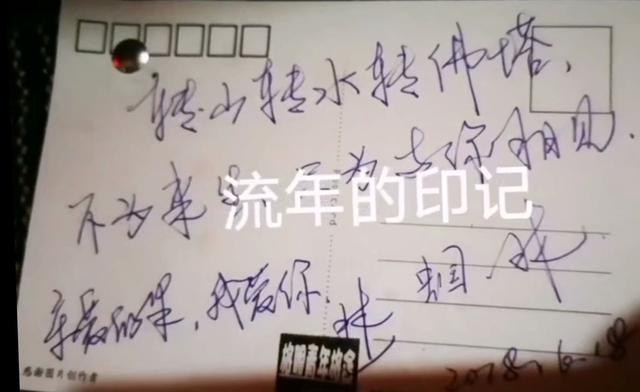 转山转水转佛塔、
不为来生,只为与你相见.
流年的印记
亲爱的
,我爱你.
2018.6.18
感谢图片创作者